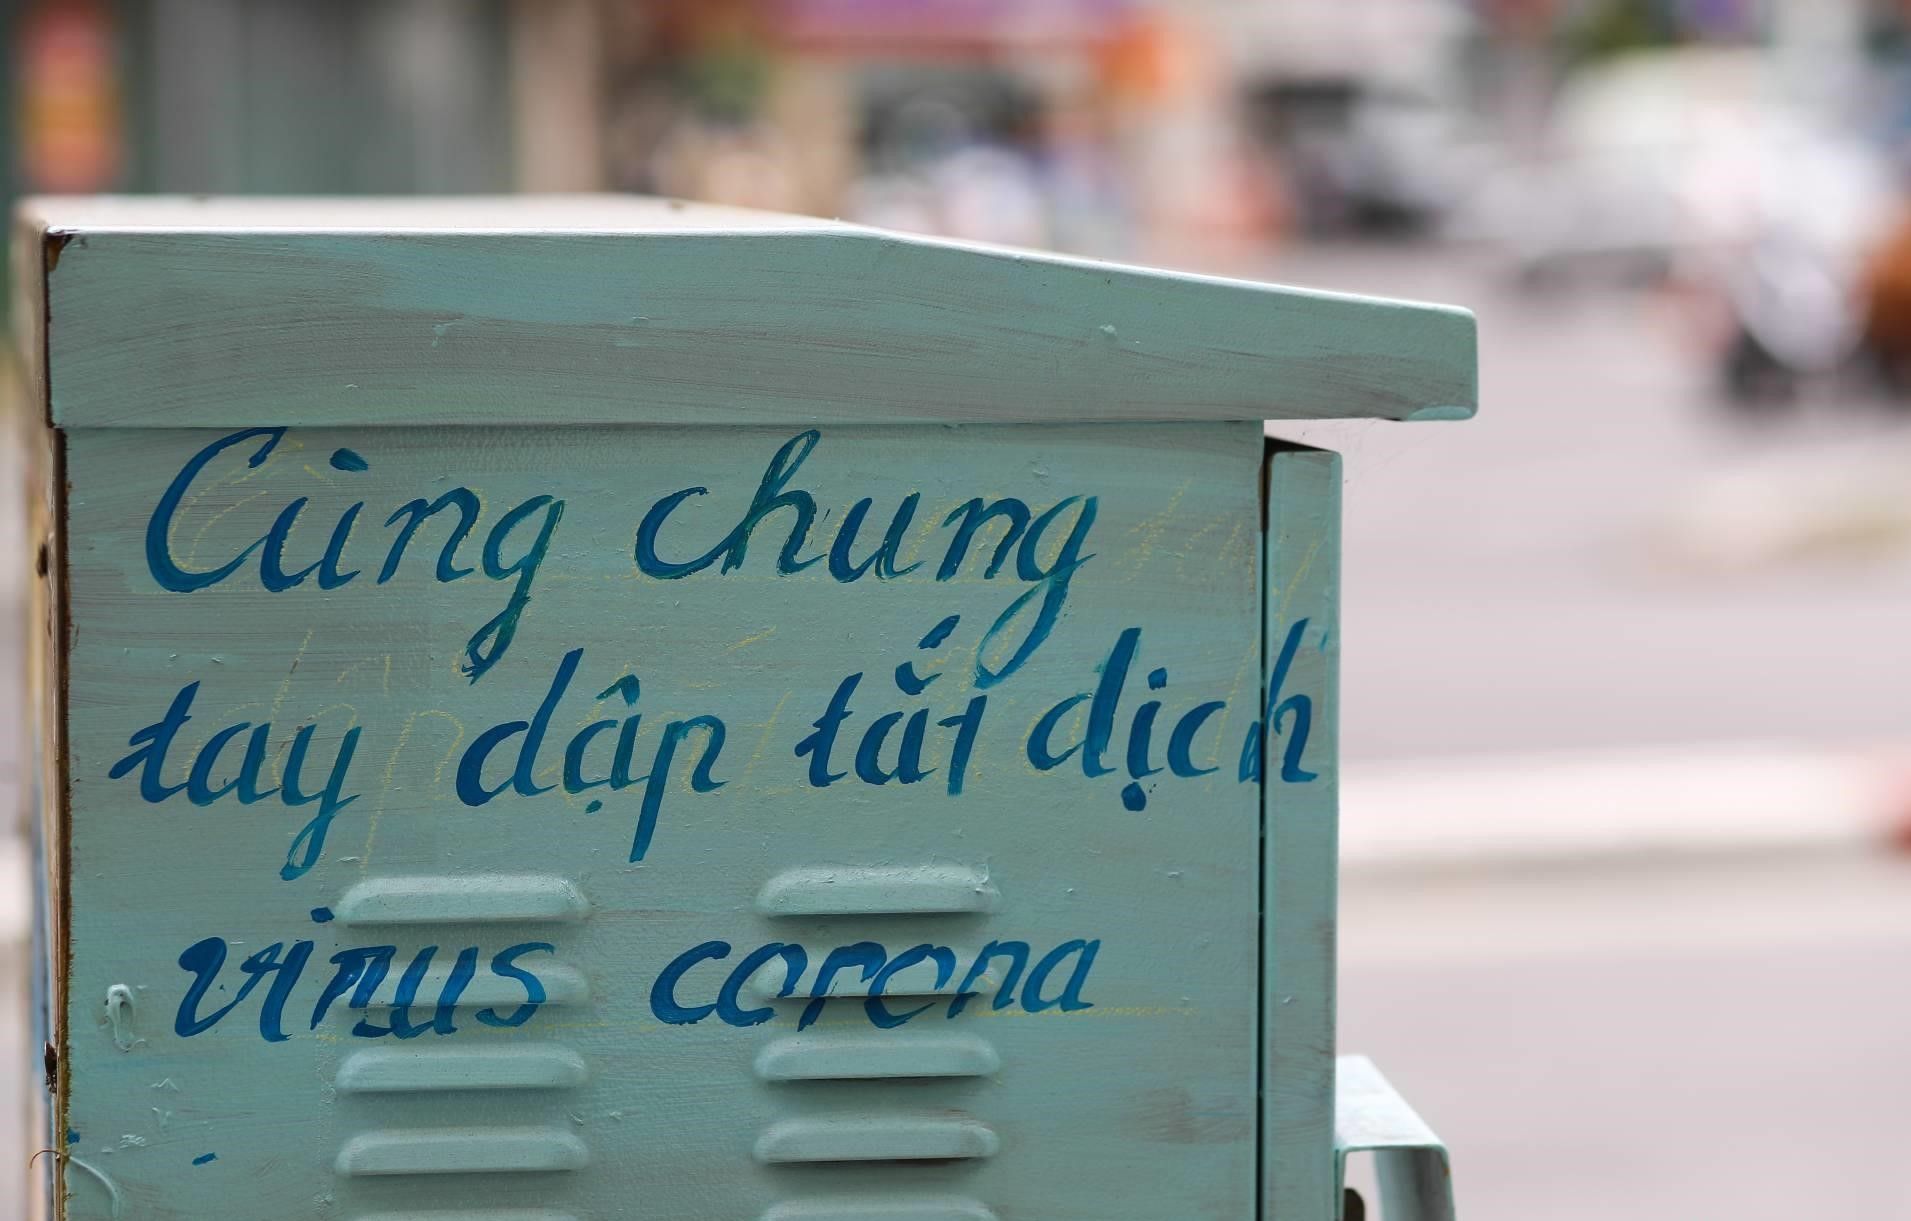 Cùng chung
tay dập tắt dịch
virus corona